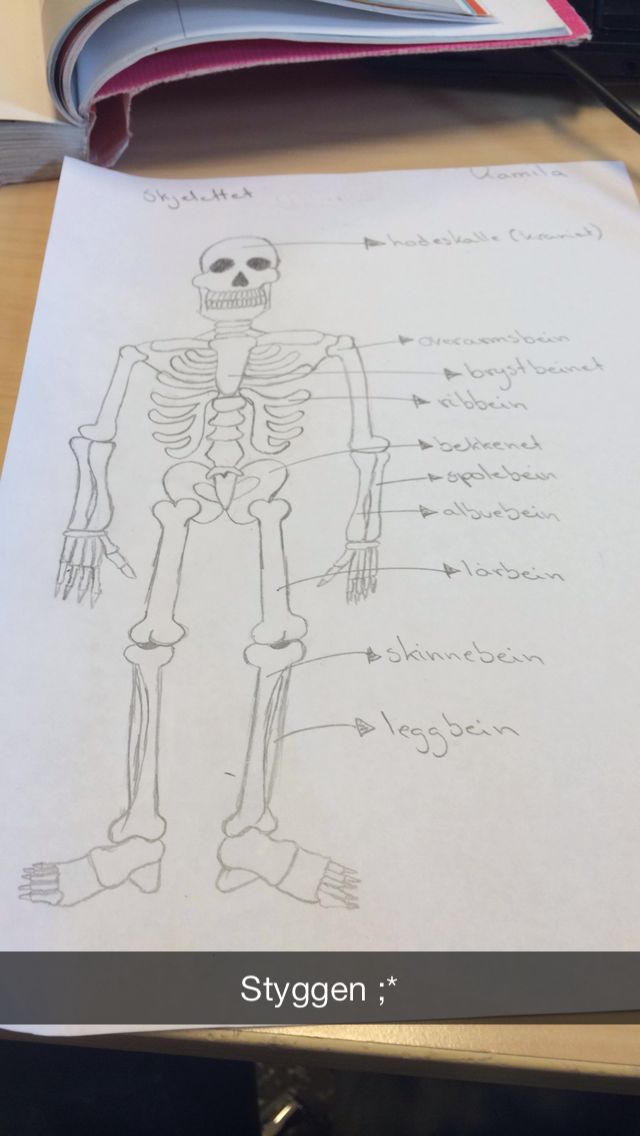 Skjelettet
Kamila
hodeskalle (kraniet)
overarmsbein
brystbeinet
ribbein
bekkenet
spolebein
albuebein
lårbein
skinnebein
leggbein
Styggen ;*